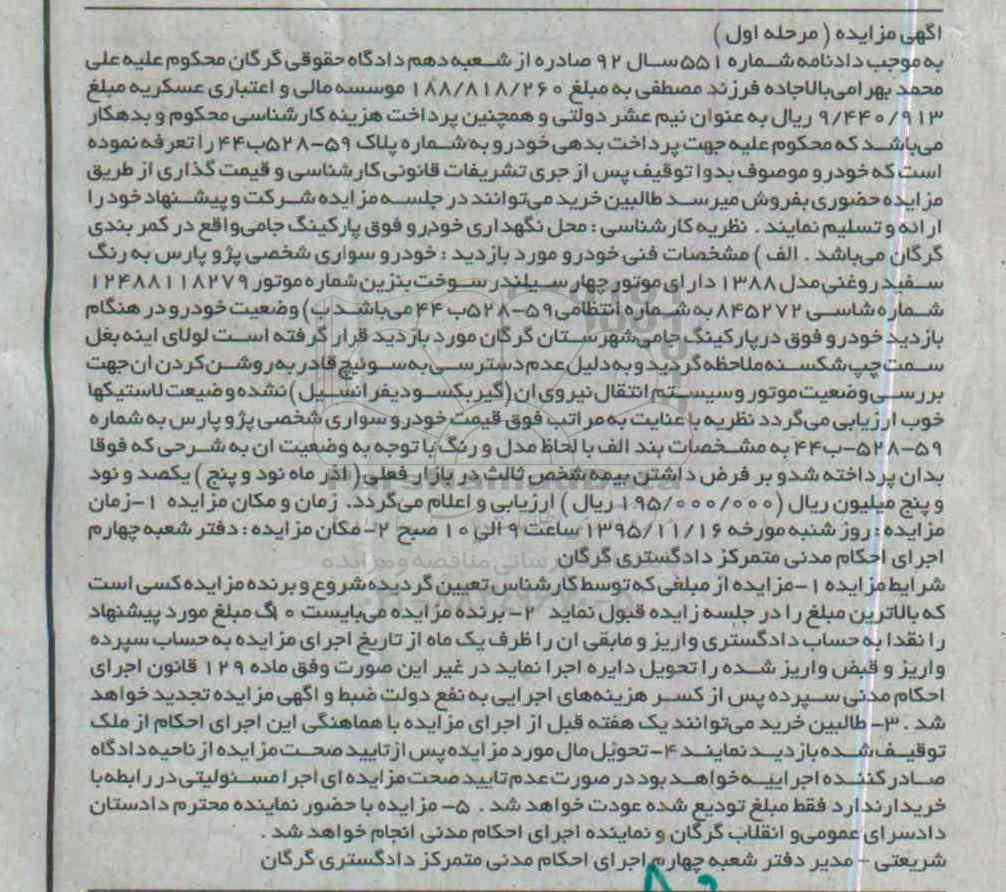 اگهی مزایده ( مرحله اول )
به موجب دادنامه شماره ۵۵۱ سال ۹۲ صادره از شعبه دهم دادگاه حقوقی گرگان محکوم علیه علی
محمد بهرامی بالاجاده فرزند مصطفی به مبلغ ۱۸۸/۸۱۸/۲۶۰ موسسه مالی و اعتباری عسکریه مبلغ
۹/۴۴۰/۹۱۳ ریال به عنوان نیم عشر دولتی و همچنین پرداخت هزینه کارشناسی محکوم و بدهکار
می‌باشد که محکوم علیه جهت پرداخت بدهی خودرو به شماره پلاک ۵۹-۵۲۸ب۴۴ را تعرفه نموده
است که خودرو موصوف بدوا توقیف پس از جری تشریفات قانونی کارشناسی و قیمت گذاری از طریق
مزایده حضوری بفروش میرسد طالبین خرید می‌توانند در جلسه مزایده شرکت و پیشنهاد خود را
ارائه و تسلیم نمایند . نظریه کارشناسی : محل نگهداری خودرو فوق پارکینگ جامی واقع در کمر بندی
گرگان می‌باشد . الف ) مشخصات فنی خودرو مورد بازدید : خودرو سواری شخصی پژو پارس به رنگ
سفید روغنی مدل ۱۳۸۸ دارای موتور چهار سیلندر سوخت بنزین شماره موتور ۱۲۴۸۸۱۱۸۲۷۹
شماره شاسی ۸۴۵۲۷۲ به شماره انتظامی ۵۹-۵۲۸ب۴۴ می‌باشد ب) وضعیت خودرو در هنگام
بازدید خودرو فوق در پارکینگ جامی شهرستان گرگان مورد بازدید قرار گرفته است لولای اینه بغل
سمت چپ شکسته ملاحظه گردید و به دلیل عدم دسترسی به سوئیچ قادر به روشن کردن ان جهت
بررسی وضعیت موتور و سیستم انتقال نیروی ان (گیربکس و دیفرانسیل) نشده وضیعت لاستیکها
خوب ارزیابی می‌گردد نظریه با عنایت به مراتب فوق قیمت خودرو سواری شخصی پژو پارس به شماره
۵۹-۵۲۸-ب۴۴ به مشخصات بند الف با لحاظ مدل و رنگ با توجه به وضعیت ان به شرحی که فوقا
بدان پرداخته شد و بر فرض داشتن بیمه شخص ثالث در بازار فعلی ( اذر ماه نود و پنج ) یکصد و نود
و پنج میلیون ریال (۱۹۵/۰۰۰/۰۰۰ ریال ) ارزیابی و اعلام می‌گردد. زمان و مکان مزایده ۱-زمان
مزایده : روز شنبه مورخه ۱۳۹۵/۱۱/۱۶ ساعت ۹ الی ۱۰ صبح ۲- مکان مزایده : دفتر شعبه چهارم
اجرای احکام مدنی متمرکز دادگستری گرگان
شرایط مزایده ۱-مزایده از مبلغی که توسط کارشناس تعیین گردیده شروع و برنده مزایده کسی است
که بالاترین مبلغ را در جلسه زایده قبول نماید ۲- برنده مزایده می‌بایست ۱۰ مبلغ مورد پیشنهاد
را نقدا به حساب دادگستری واریز و مابقی ان را ظرف یک ماه از تاریخ اجرای مزایده به حساب سپرده
واریز و قبض واریز شده را تحویل دایره اجرا نماید در غیر این صورت وفق ماده ۱۲۹ قانون اجرای
احکام مدنی سپرده پس از کسر هزینه‌های اجرایی به نفع دولت ضبط و اگهی مزایده تجدید خواهد
شد . ۳- طالبین خرید می‌توانند یک هفته قبل از اجرای مزایده با هماهنگی این اجرای احکام از ملک
توقیف شده بازدید نمایند ۴- تحویل مال مورد مزایده پس از تایید صحت مزایده از ناحیه دادگاه
صادر کننده اجراییه خواهد بود در صورت عدم تایید صحت مزایده ای اجرا مسئولیتی در رابطه با
خریدار ندارد فقط مبلغ تودیع شده عودت خواهد شد . ۵- مزایده با حضور نماینده محترم دادستان
دادسرای عمومی و انقلاب گرگان و نماینده اجرای احکام مدنی انجام خواهد شد .
شریعتی - مدیر دفتر شعبه چهارم اجرای احکام مدنی متمرکز دادگستری گرگان